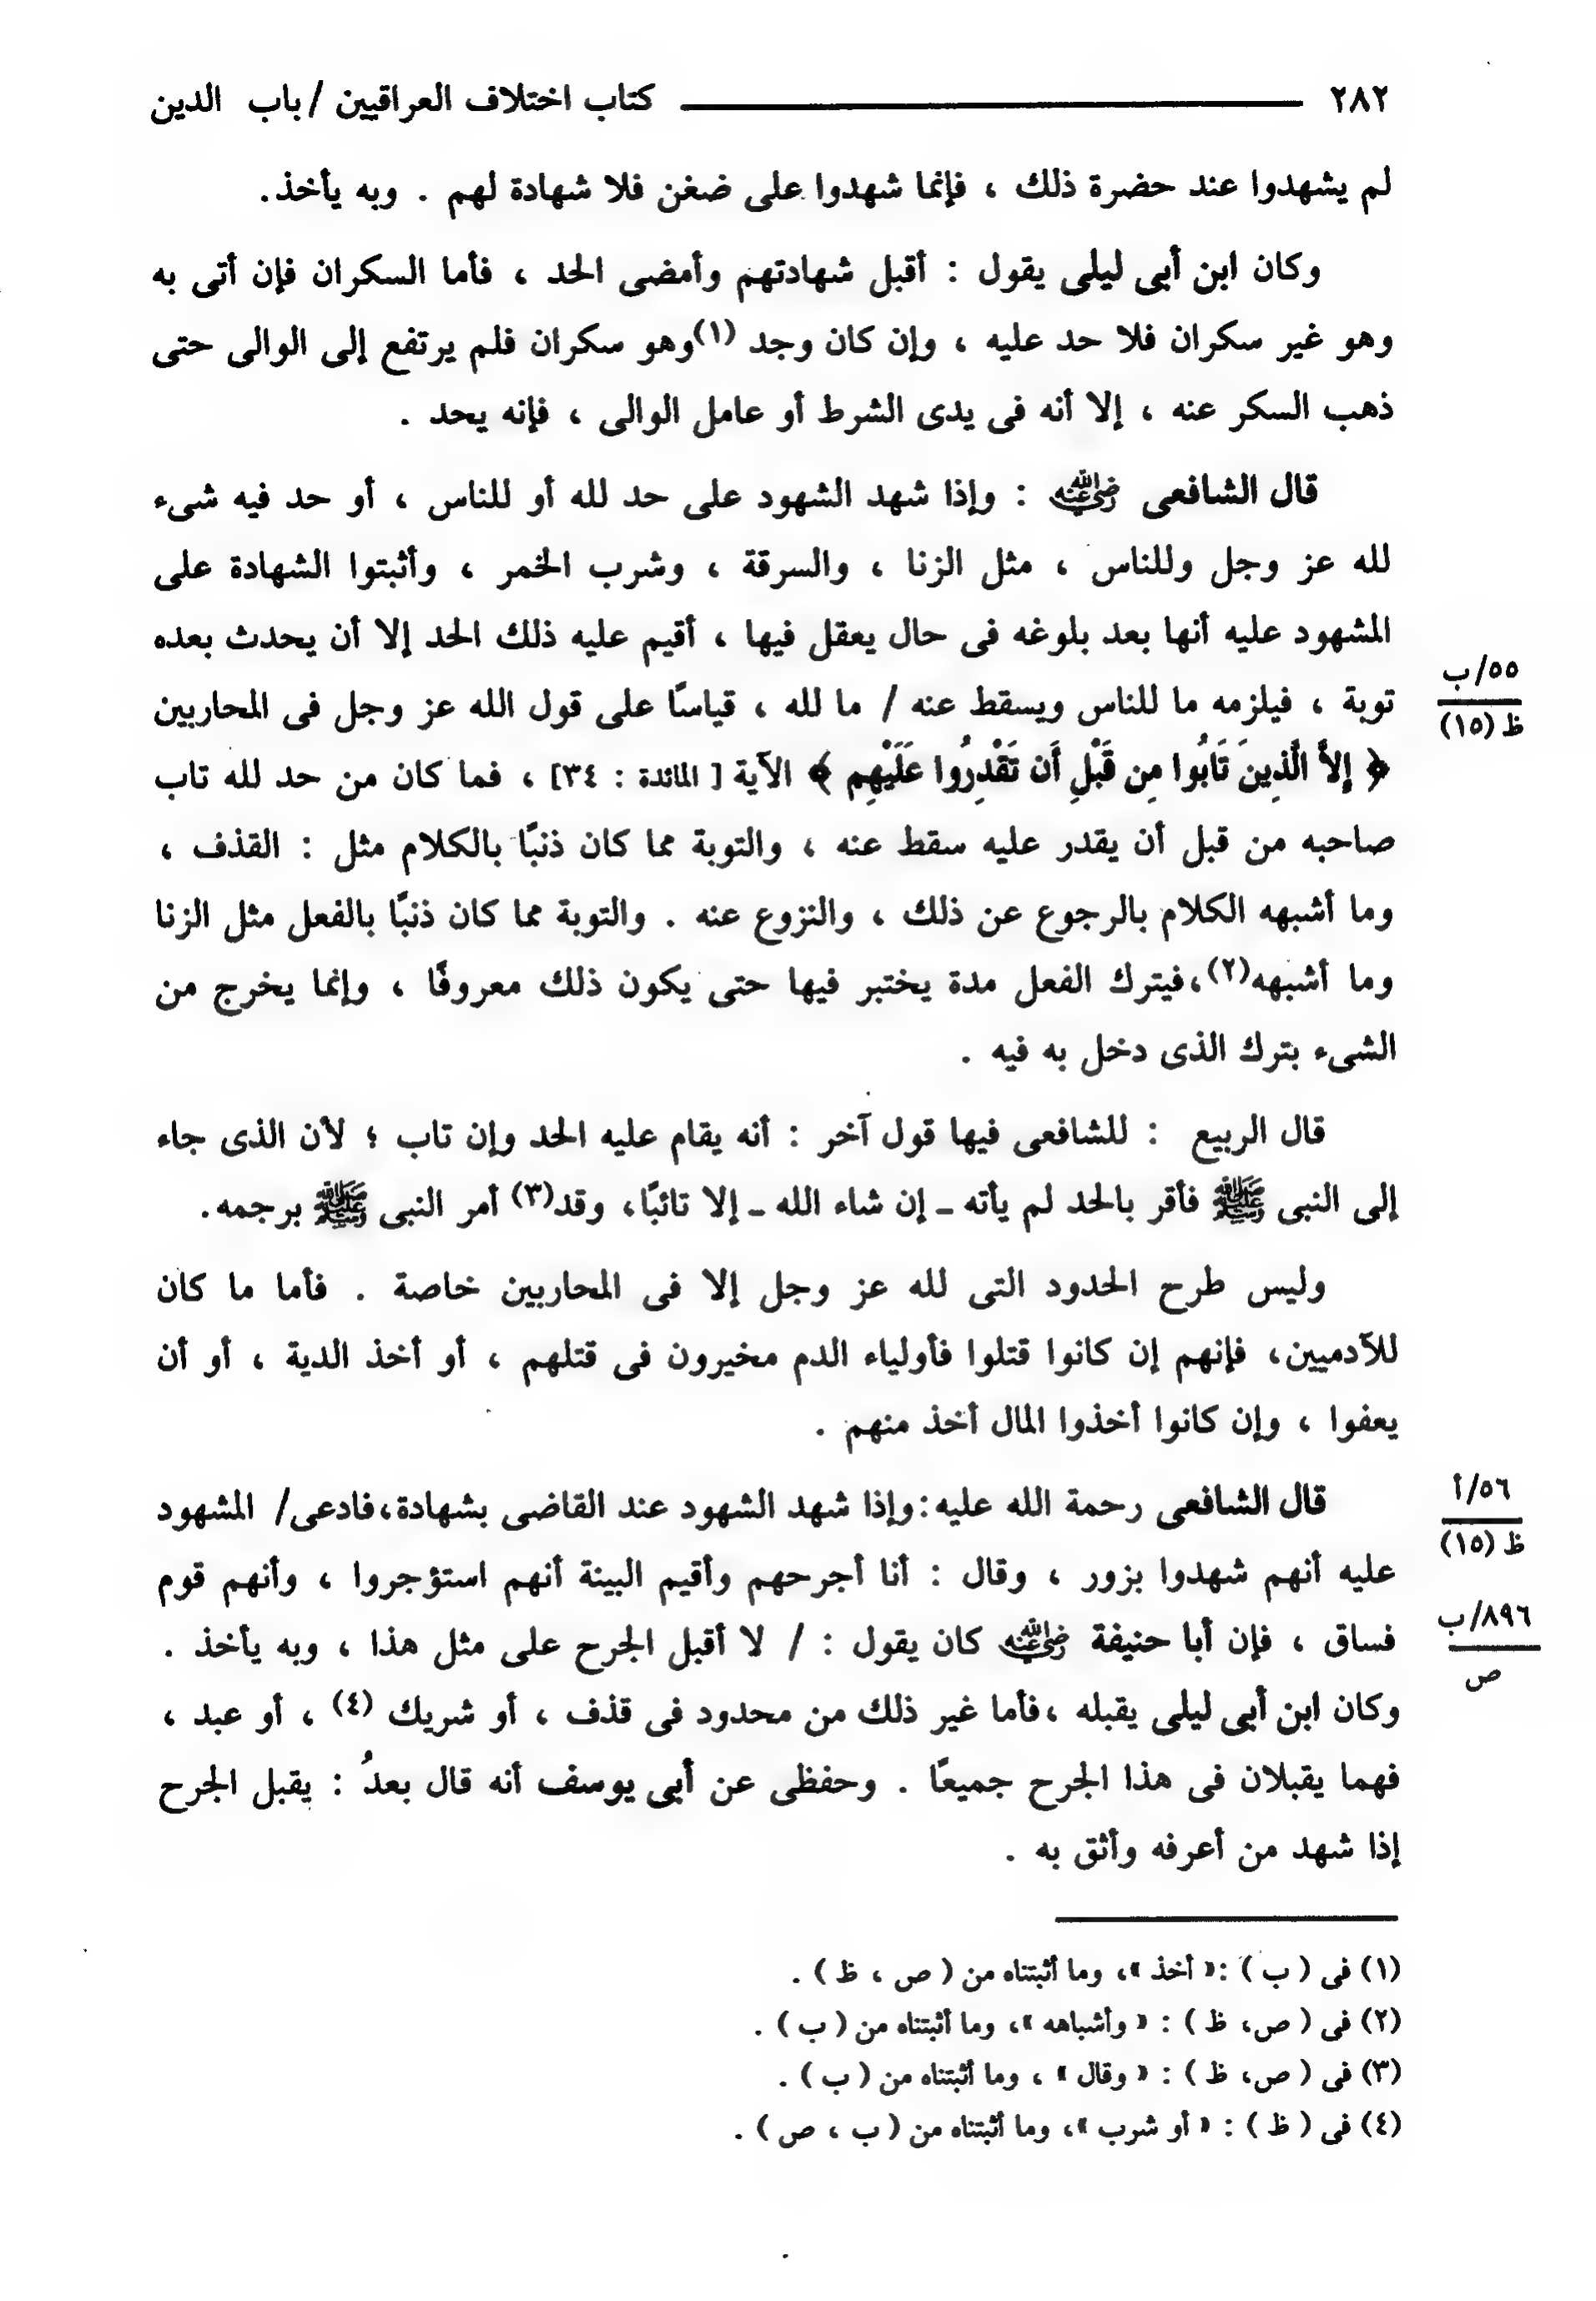 ٢٨٢ كتاب اختلاف العراقيين / باب الدين
لم يشهدوا عند حضرة ذلك ، فإنما شهدوا على ضغن فلا شهادة لهم . وبه يأخذ.
وكان ابن أبى ليلى يقول : أقبل شهادتهم وأمضى الحد ، فأما السكران فإن أتى به
وهو غير سكران فلا حد عليه ، وإن كان وجد (١)وهو سكران فلم يرتفع إلى الوالى حتى
ذهب السكر عنه ، إلا أنه فى يدى الشرط أو عامل الوالى ، فإنه يحد .
قال الشافعى رضي الله عنه : وإذا شهد الشهود على حد لله أو للناس ، أو حد فيه شىء
لله عز وجل وللناس ، مثل الزنا ، والسرقة ، وشرب الخمر ، وأثبتوا الشهادة على
المشهود عليه أنها بعد بلوغه فى حال يعقل فيها ، أقيم عليه ذلك الحد إلا أن يحدث بعده
٥٥/ب
ظ (١٥)
توبة ، فيلزمه ما للناس ويسقط عنه / ما لله ، قياسًا على قول الله عز وجل فى المحاربين
﴿ إِلاَّ الَّذِينَ تَابُوا مِن قَبْلِ أَن تَقْدِرُوا عَلَيْهِم ﴾ الآية [ المائدة : ٣٤] ، فما كان من حد لله تاب
صاحبه من قبل أن يقدر عليه سقط عنه ، والتوبة مما كان ذنبًا بالكلام مثل : القذف ،
وما أشبهه الكلام بالرجوع عن ذلك ، والنزوع عنه . والتوبة مما كان ذنبًا بالفعل مثل الزنا
وما أشبهه(٢)،فيترك الفعل مدة يختبر فيها حتى يكون ذلك معروفًا ، وإنما يخرج من
الشىء بترك الذى دخل به فيه .
قال الربيع : للشافعى فيها قول آخر : أنه يقام عليه الحد وإن تاب ؛ لأن الذى جاء
إلى النبى ﷺ فأقر بالحد لم يأته ـ إن شاء الله ـ إلا تائبًا، وقد(٣) أمر النبى ﷺ برجمه.
وليس طرح الحدود التى لله عز وجل إلا فى المحاربين خاصة . فأما ما كان
للآدميين، فإنهم إن كانوا قتلوا فأولياء الدم مخيرون فى قتلهم ، أو أخذ الدية ، أو أن
يعفوا ، وإن كانوا أخذوا المال أخذ منهم .
٥٦/أ
ظ (١٥)
قال الشافعى رحمة الله عليه:وإذا شهد الشهود عند القاضى بشهادة،فادعى/ المشهود
عليه أنهم شهدوا بزور ، وقال : أنا أجرحهم وأقيم البينة أنهم استؤجروا ، وأنهم قوم
٨٩٦/ب
ص
فساق ، فإن أبا حنيفة رضي الله عنه كان يقول : / لا أقبل الجرح على مثل هذا ، وبه يأخذ .
وكان ابن أبى ليلى يقبله ،فأما غير ذلك من محدود فى قذف ، أو شريك (٤) ، أو عبد ،
فهما يقبلان فى هذا الجرح جميعًا . وحفظى عن أبى يوسف أنه قال بعدُ : يقبل الجرح
إذا شهد من أعرفه وأثق به .
(١) فى ( ب ) :« أخذ »، وما أثبتناه من ( ص ، ظ ) .
(٢) فى ( ص، ظ ) : « وأشباهه »، وما أثبتناه من ( ب ) .
(٣) فى ( ص، ظ ) : « وقال » ، وما أثبتناه من ( ب ) .
(٤) فى ( ظ ) : « أو شرب »، وما أثبتناه من ( ب ، ص ) .